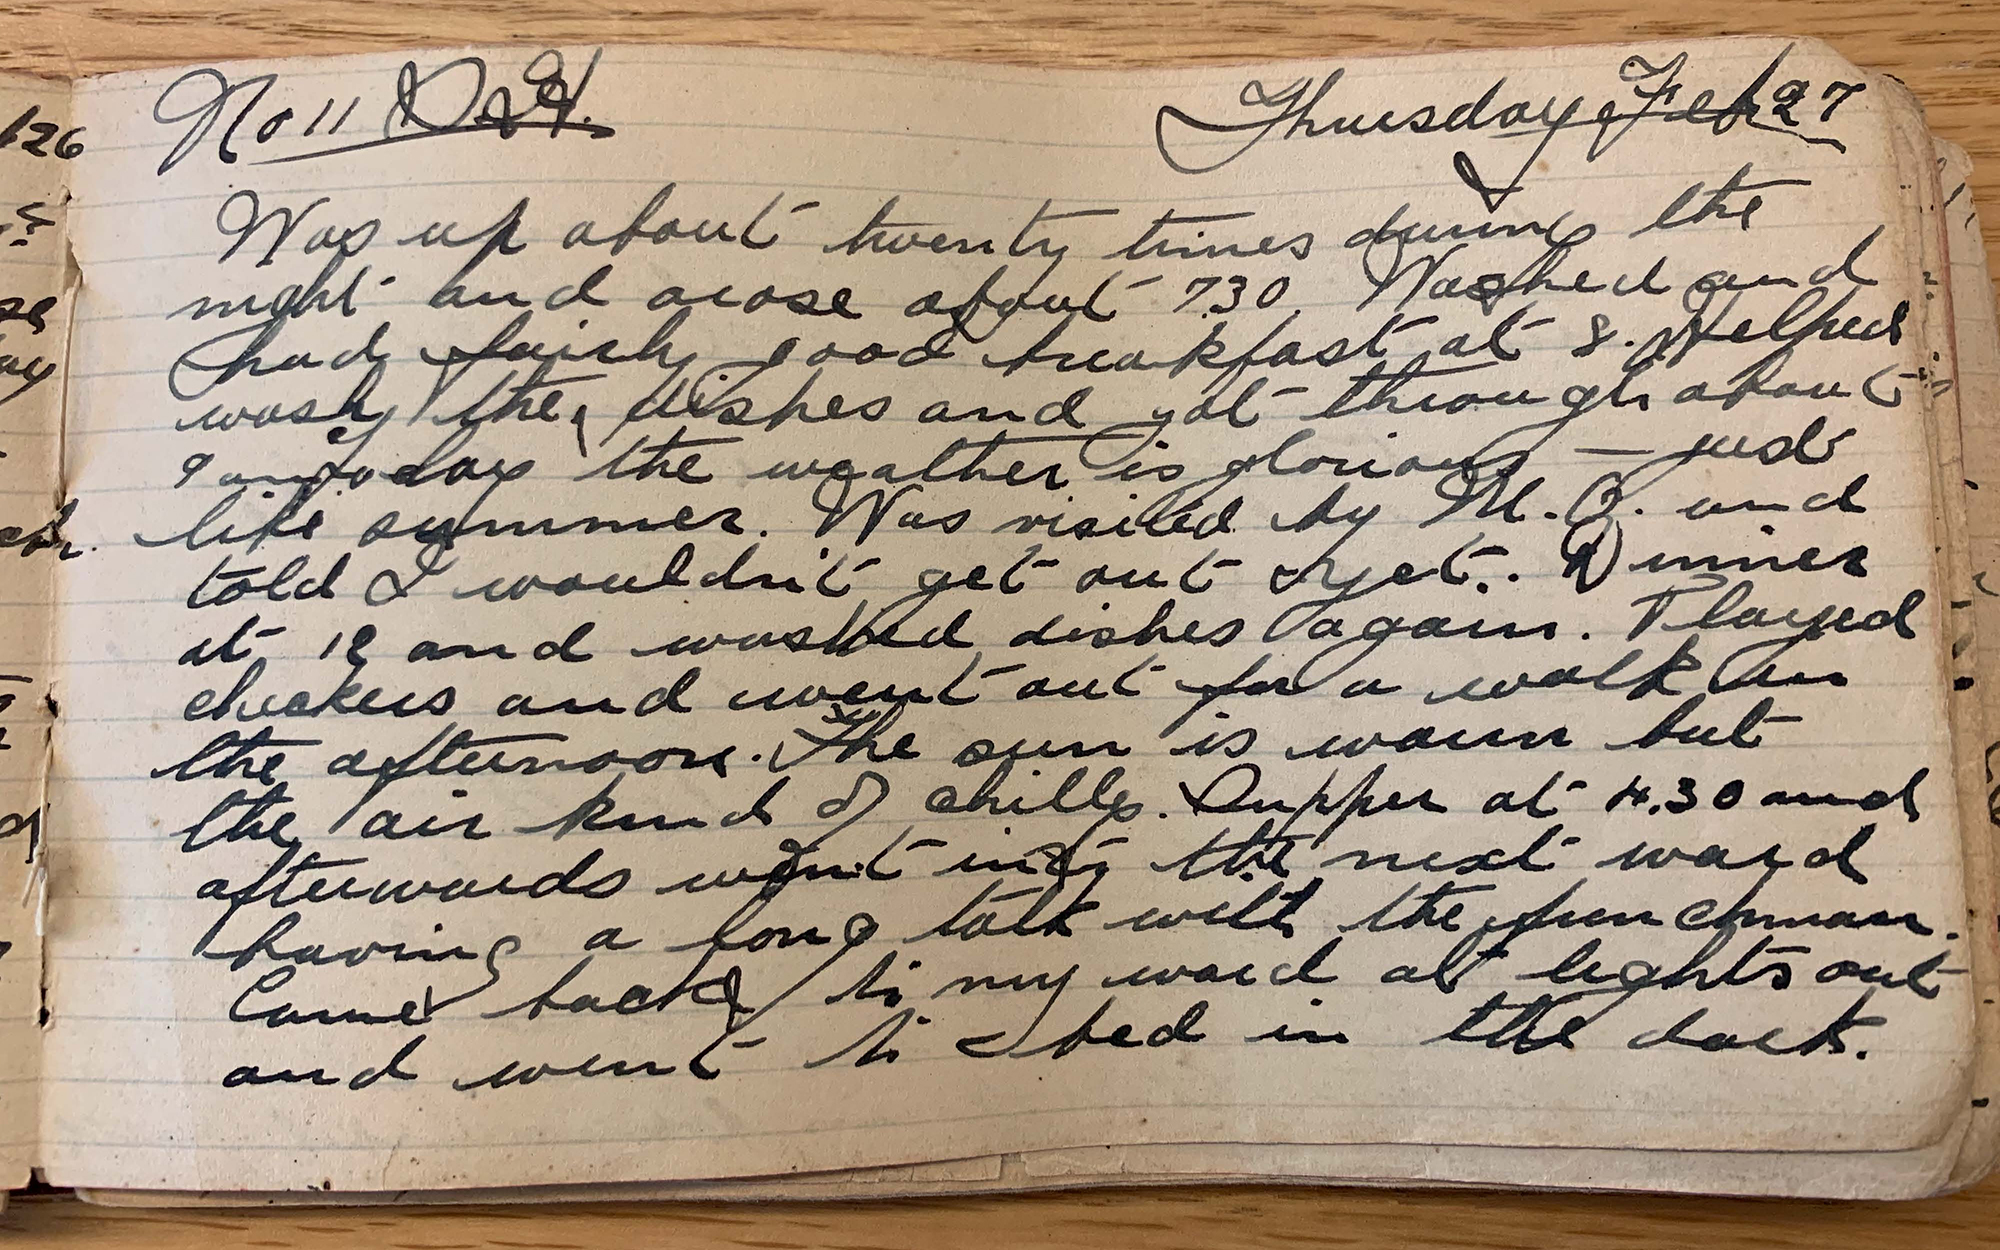 No 11 D.S.H. Thursday Feb 27
Was up about twenty times during the
night and arose about 7.30. Washed and
had fairly good breakfast at 8. Helped
wash the dishes and got through about
9 am today the weather is glorious — just
like summer. Was visited by M.O. and
told I wouldn't get out yet. Dinner
at 12 and washed dishes again. Played
checkers and went out for a walk in
the afternoon. The sun is warm but
the air kind of chilly. Supper at 4.30 and
afterwards went into the next ward
having a long talk with the
Came back to my ward at lights out
and went to bed in the dark.